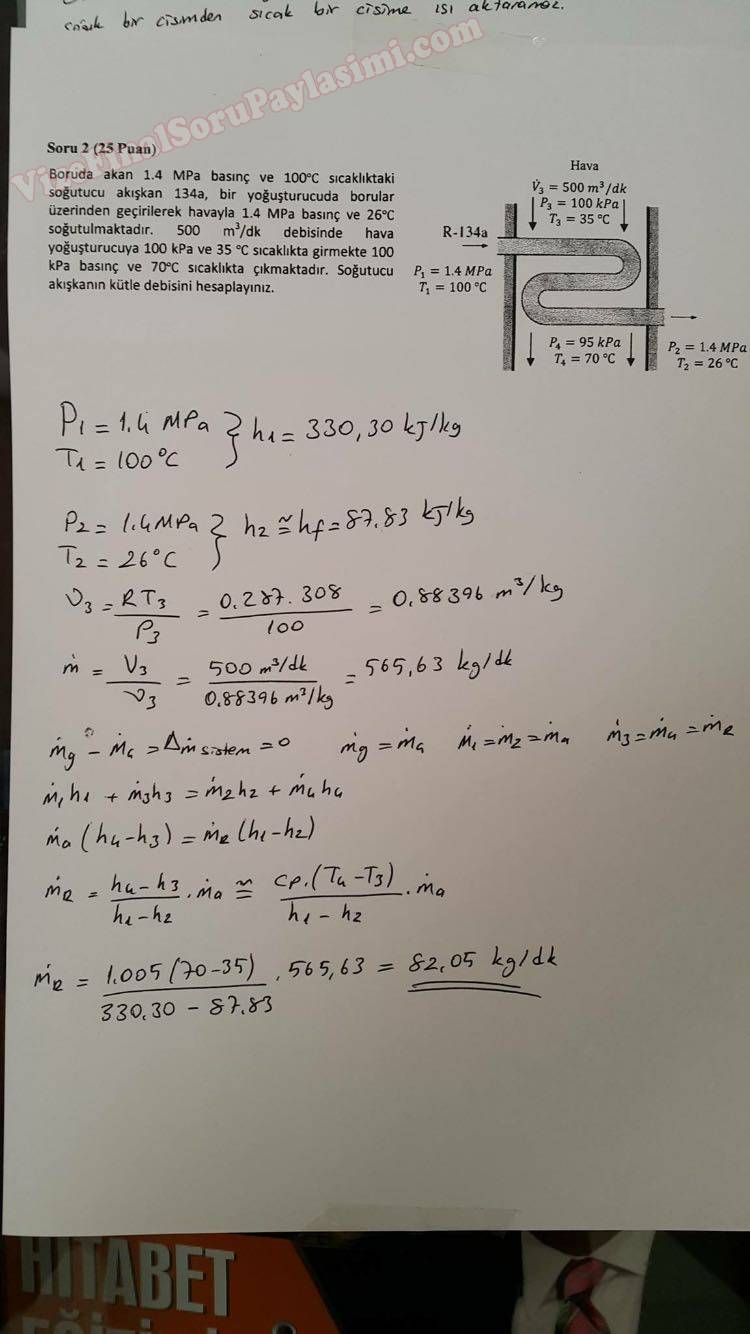 soğuk bir cisimden sıcak bir cisime ısı aktaramaz.
VizeFinalSoruPaylasimi.com
Soru 2 (25 Puan)
Boruda akan 1.4 MPa basınç ve 100°C sıcaklıktaki
soğutucu akışkan 134a, bir yoğuşturucuda borular
üzerinden geçirilerek havayla 1.4 MPa basınç ve 26°C
soğutulmaktadır. 500 m³/dk debisinde hava
yoğuşturucuya 100 kPa ve 35 °C sıcaklıkta girmekte 100
kPa basınç ve 70°C sıcaklıkta çıkmaktadır. Soğutucu
akışkanın kütle debisini hesaplayınız.
Hava
V̇₃ = 500 m³/dk
P₃ = 100 kPa
T₃ = 35 °C
R-134a
P₁ = 1.4 MPa
T₁ = 100 °C
P₄ = 95 kPa
T₄ = 70 °C
P₂ = 1.4 MPa
T₂ = 26 °C
P₁ = 1.4 MPa } h₁ = 330,30 kJ/kg
T₁ = 100°C
P₂ = 1.4 MPa } h₂ ≅ hf = 87.83 kJ/kg
T₂ = 26°C
υ₃ = RT₃/P₃ = 0.287.308/100 = 0.88396 m³/kg
ṁ = V₃/υ₃ = 500 m³/dk / 0.88396 m³/kg = 565,63 kg/dk
ṁg - ṁç = Δṁsistem = 0 ṁg = ṁç ṁ₁ = ṁ₂ = ṁa ṁ₃ = ṁ₄ = ṁR
ṁ₁h₁ + ṁ₃h₃ = ṁ₂h₂ + ṁ₄h₄
ṁa (h₄-h₃) = ṁR (h₁-h₂)
ṁR = h₄-h₃/h₁-h₂ . ṁa ≅ cp.(T₄-T₃)/h₁-h₂ . ṁa
ṁR = 1.005(70-35)/330.30 - 87.83 . 565,63 = 82.05 kg/dk
HİTABET